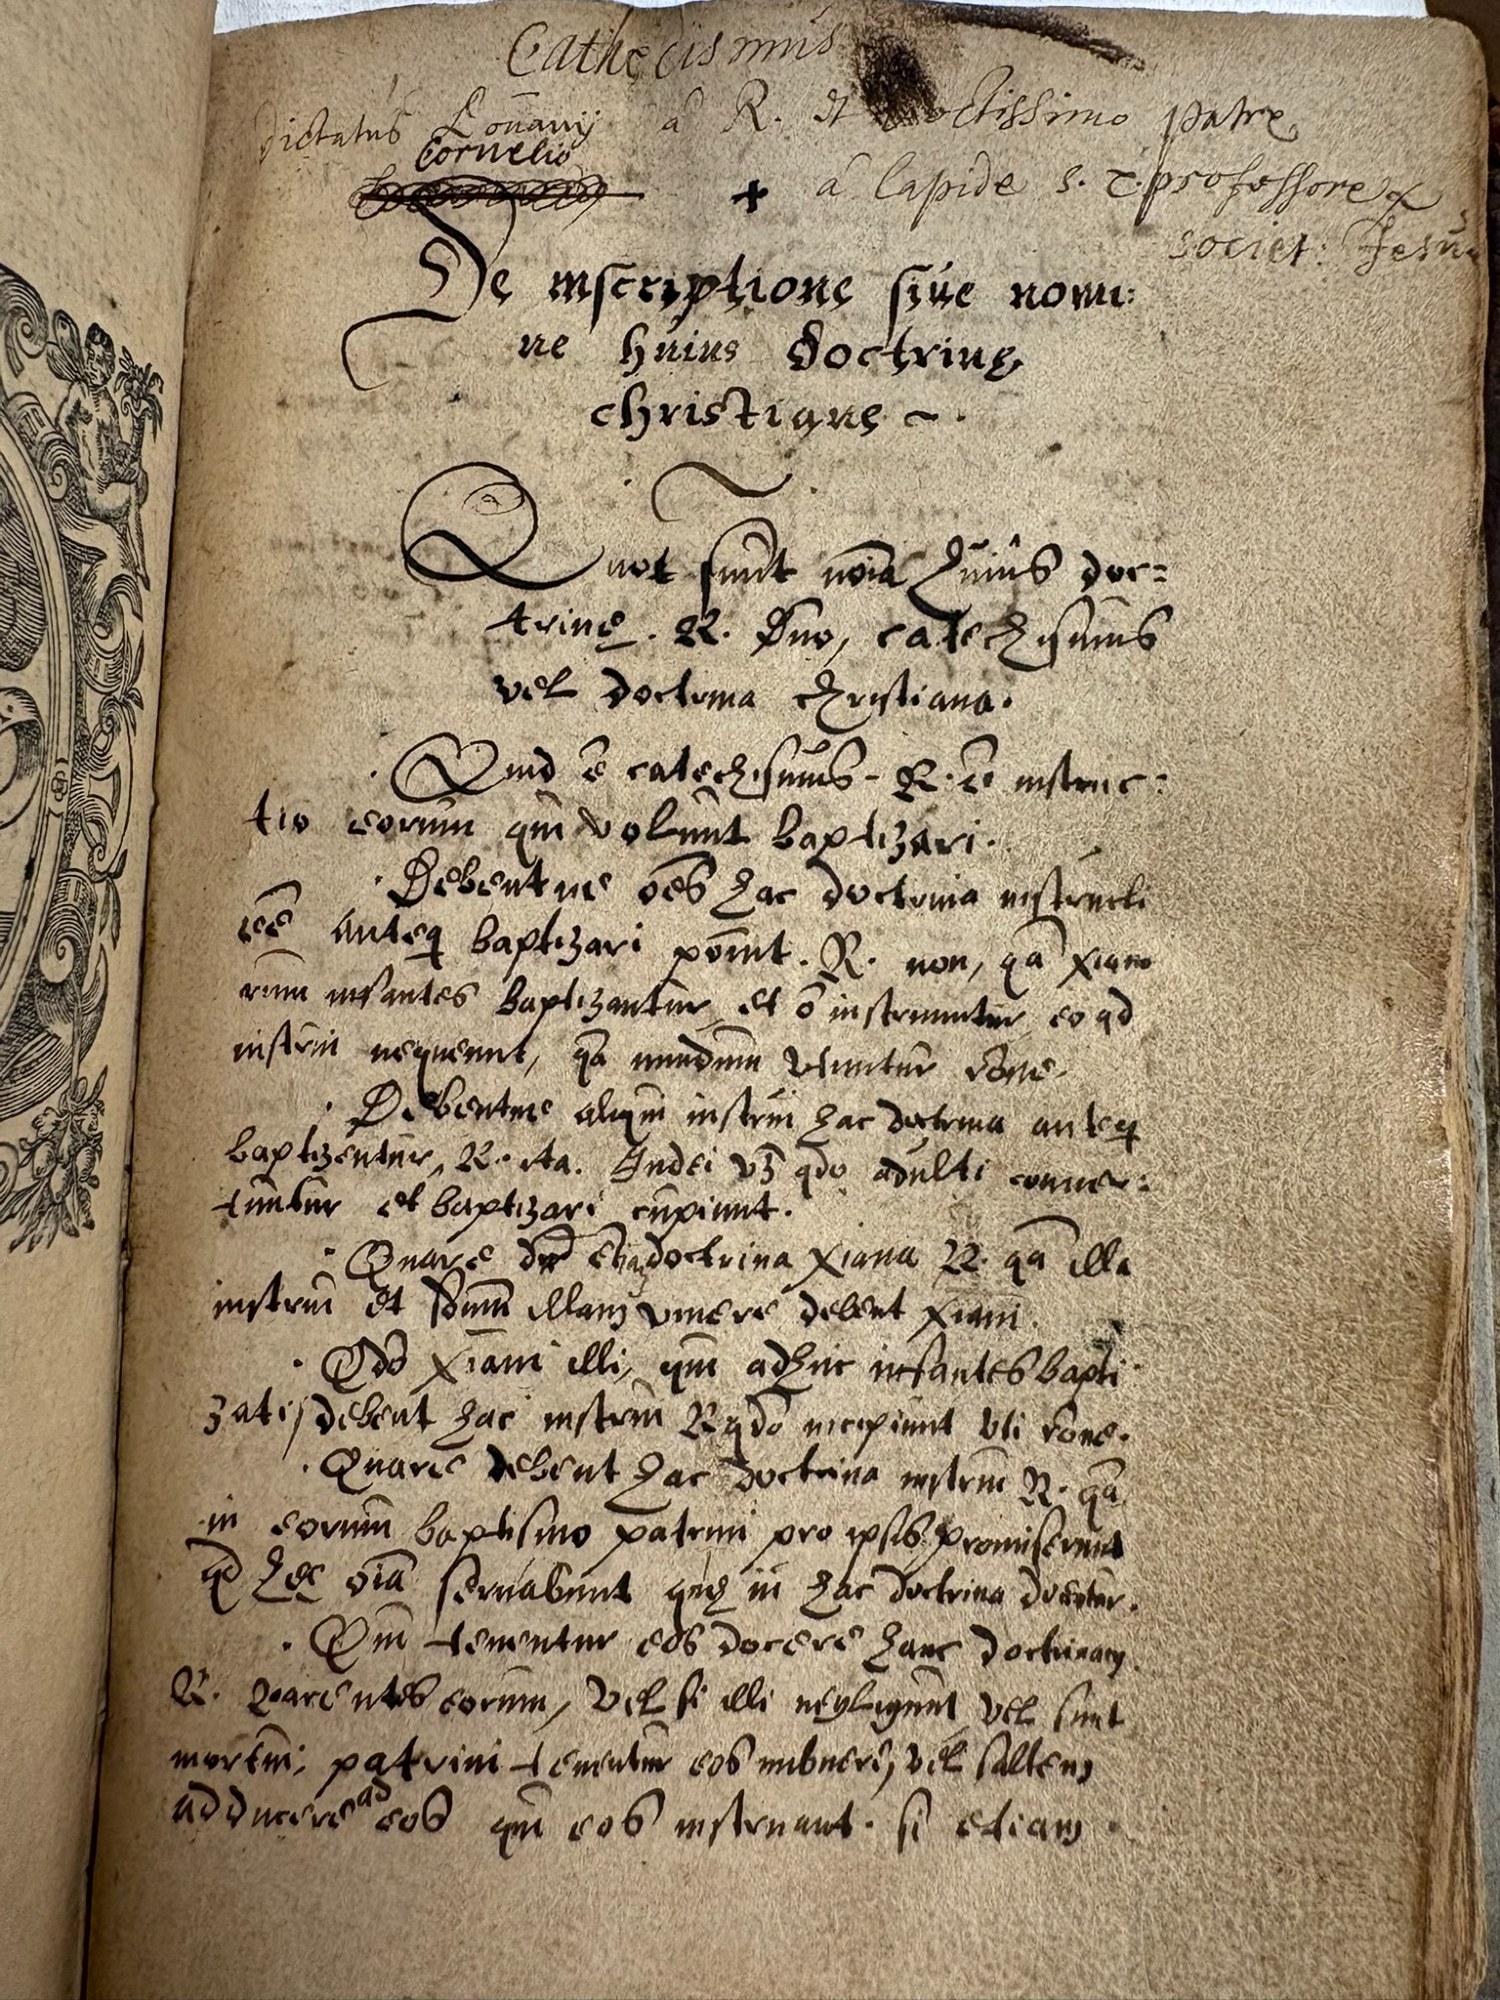 Cathecismus
Dictatus Lovanij a R. et doctissimo patre
Cornelio
+ a lapide s. T. professore
societ: Jesu
De inscriptione siue nomi:
ne huius doctrinę
christianę ~.
Quot sunt noīa huius doc=
trinę. R. Duo, catechismus
vel doctrina christiana.
Quid ē catechismus - R. ē instruc:
tio eorum qui volunt baptizari.
Debentne oēs hac doctrina instructi
eē anteq baptizari possint. R. non, qa xiano
rum infantes baptizantur et ō instruuntur eo qd
instrui nequeunt, qa nundum utuntur rōne.
Debentne aliqui instrui hac doctrina anteq
baptizentur, R. ita. Iudei vz qdo adulti conuer:
tuntur et baptizari cupiunt.
Quare doctrina xiana R. qa illa
instrui et illam viuere debent xiani.
Qdo xiani illi, qui adhuc infantes bapti
zati, debent hac instrui R qdo incipiunt uti rōne.
Quare debent hac doctrina instrui R. qa
in eorum baptismo patrini pro ipsis promiserunt
qd hęc oīa seruabunt quę in hac doctrina docentur.
Qui tenentur eos docere hanc doctrinam
R. Parentes eorum, vel si illi negligunt vel sunt
mortui, patrini tenentur eos imbuere, vel saltem
adducere ad eos qui eos instruant. si etiam